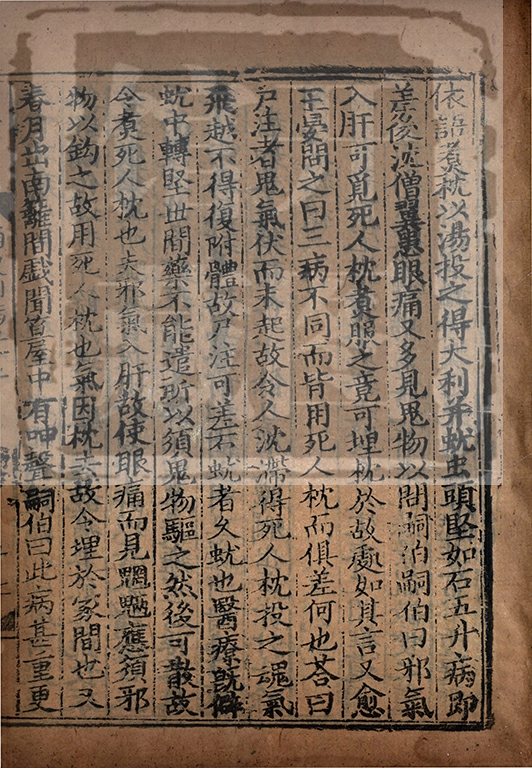 依語煮枕以湯投之得大利并蚘虫頭堅如石五升病即
差後沈僧翼患眼痛又多見鬼物以問嗣伯嗣伯曰邪氣
入肝可覓死人枕煮服之竟可埋枕於故處如其言又愈
王晏問之曰三病不同而皆用死人枕而俱差何也荅曰
尸注者鬼氣伏而未起故令人沈滯得死人枕投之魂氣
飛越不得復附體故尸注可差石蚘者久蚘也醫療旣僻
蚘中轉堅世間藥不能遣所以須鬼物驅之然後可散故
令煮死人枕也夫邪氣入肝故使眼痛而見魍魎應須邪
物以鈎之故用死人枕也氣因枕去故令埋於冢間也又
春月出南籬間戲聞笪屋中有呻聲嗣伯曰此病甚重更